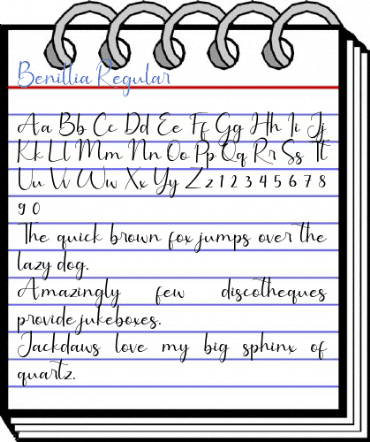 Benillia Regular
Aa Bb Cc Dd Ee Ff Gg Hh Ii Jj
Kk Ll Mm Nn Oo Pp Qq Rr Ss Tt
Uu Vv Ww Xx Yy Zz 1 2 3 4 5 6 7 8
9 0
The quick brown fox jumps over the
lazy dog.
Amazingly few discotheques
provide jukeboxes.
Jackdaws love my big sphinx of
quartz.